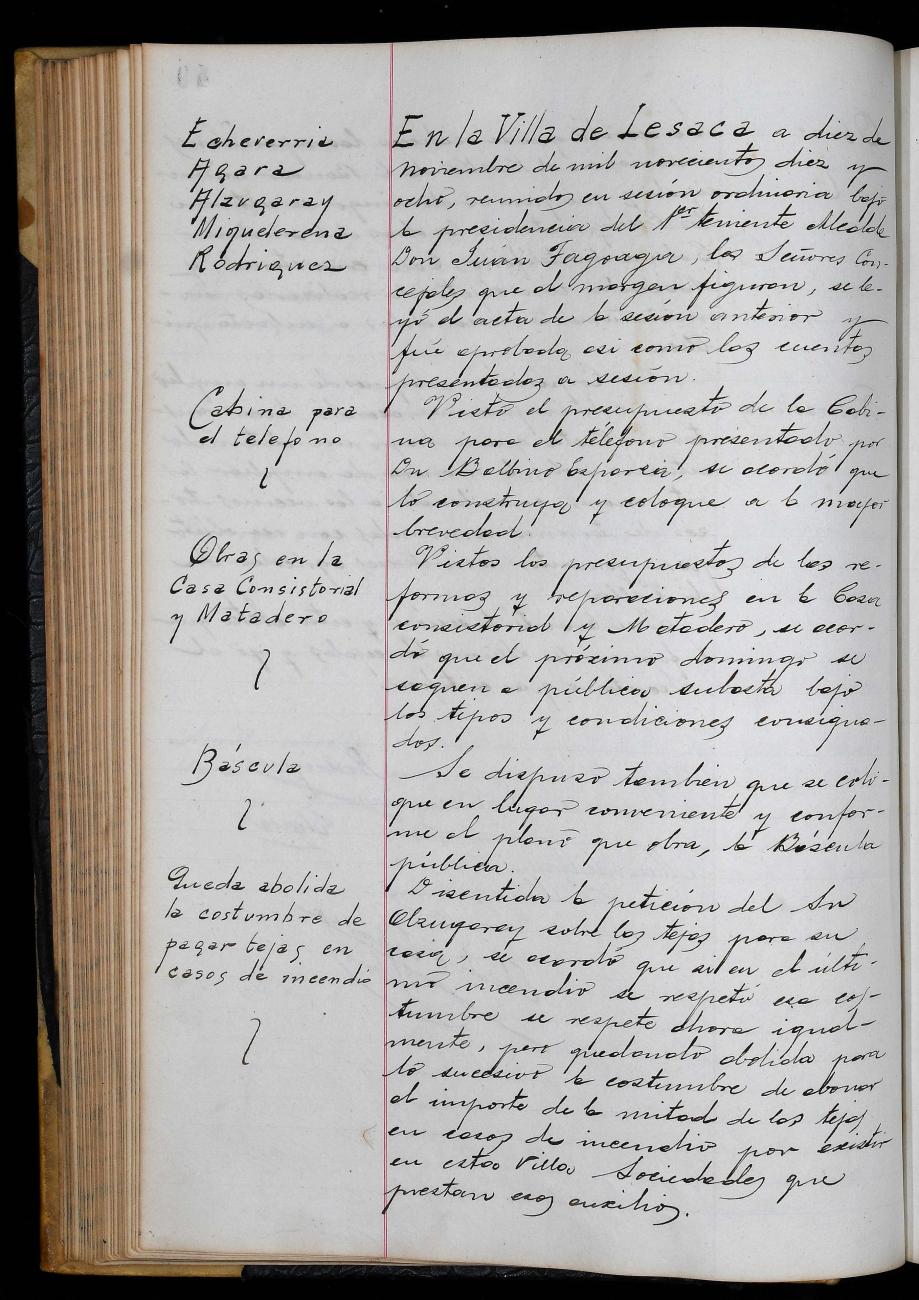 Echeverria
Agara
Alzugaray
Miquelerena
Rodriguez
En la Villa de Lesaca a diez de
noviembre de mil novecientos diez y
ocho, reunidos en sesión ordinaria bajo
la presidencia del 1er teniente Alcalde
Don Juan Fagoaga, los Señores Con-
cejales que al margen figuran, se le-
yó el acta de la sesión anterior y
fué aprobada asi como las cuentas
presentadas a sesión.
Cabina para
el telefono
Visto el presupuesto de la Cabi-
na para el teléfono presentado por
Dn Balbino Esparza, se acordó que
lo construya y coloque a la mayor
brevedad.
Obras en la
Casa Consistorial
y Matadero
Vistos los presupuestos de las re-
formas y reparaciones en la Casa
consistorial y Matadero, se acor-
dó que el próximo domingo se
saquen a pública subasta bajo
los tipos y condiciones consigna-
dos.
Báscula
Se dispuso tambien que se colo-
que en lugar conveniente y confor-
me al plano que obra, la Báscula
pública.
Queda abolida
la costumbre de
pagar tejas en
casos de incendio
Discutida la petición del Sr
Alzugaray sobre las tejas para su
casa, se acordó que si en el últi-
mo incendio se respetó esa cos-
tumbre se respete ahora igual-
mente, pero quedando abolida para
lo sucesivo la costumbre de abonar
el importe de la mitad de las tejas
en casos de incendio por existir
en esta Villa Sociedades que
prestan esos auxilios.